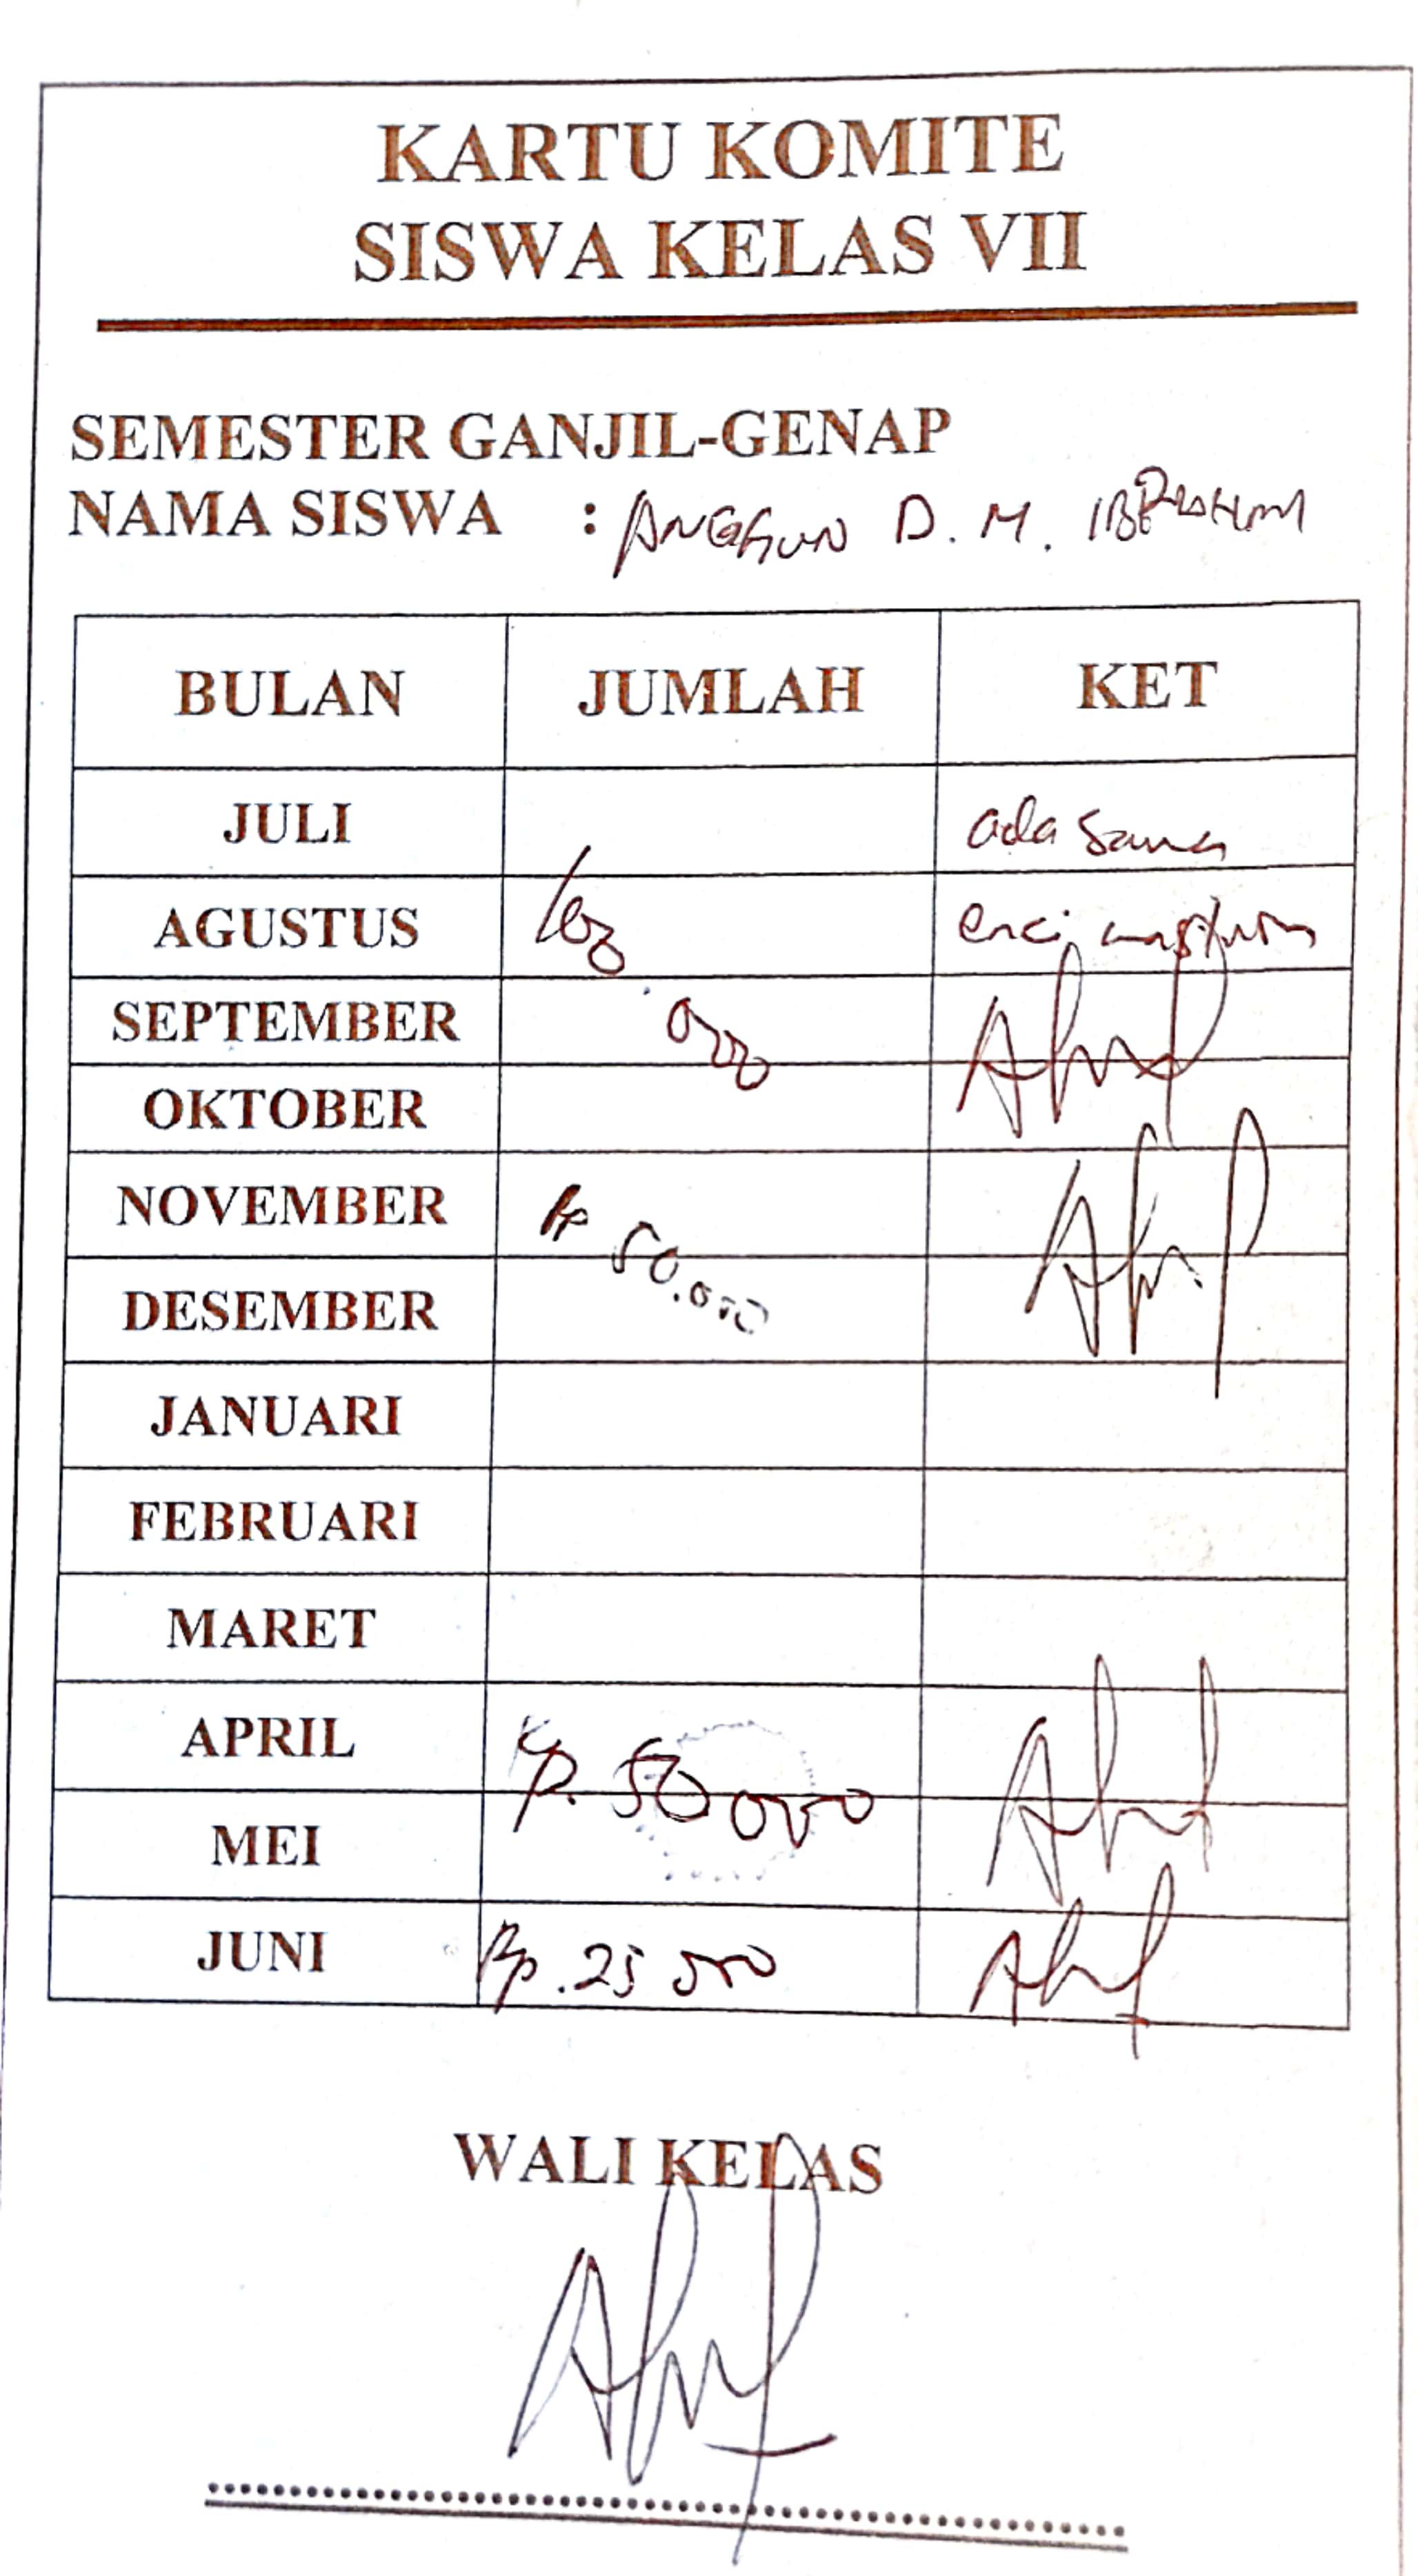 KARTU KOMITE
SISWA KELAS VII
SEMESTER GANJIL-GENAP
NAMA SISWA : ANGGUN D. M. IBRAHIM
BULAN JUMLAH KET
JULI ada sama
AGUSTUS 100 enci
SEPTEMBER 000
OKTOBER
NOVEMBER Rp 50.000
DESEMBER
JANUARI
FEBRUARI
MARET
APRIL Rp. 50 000
MEI
JUNI Rp. 25 000
WALI KELAS